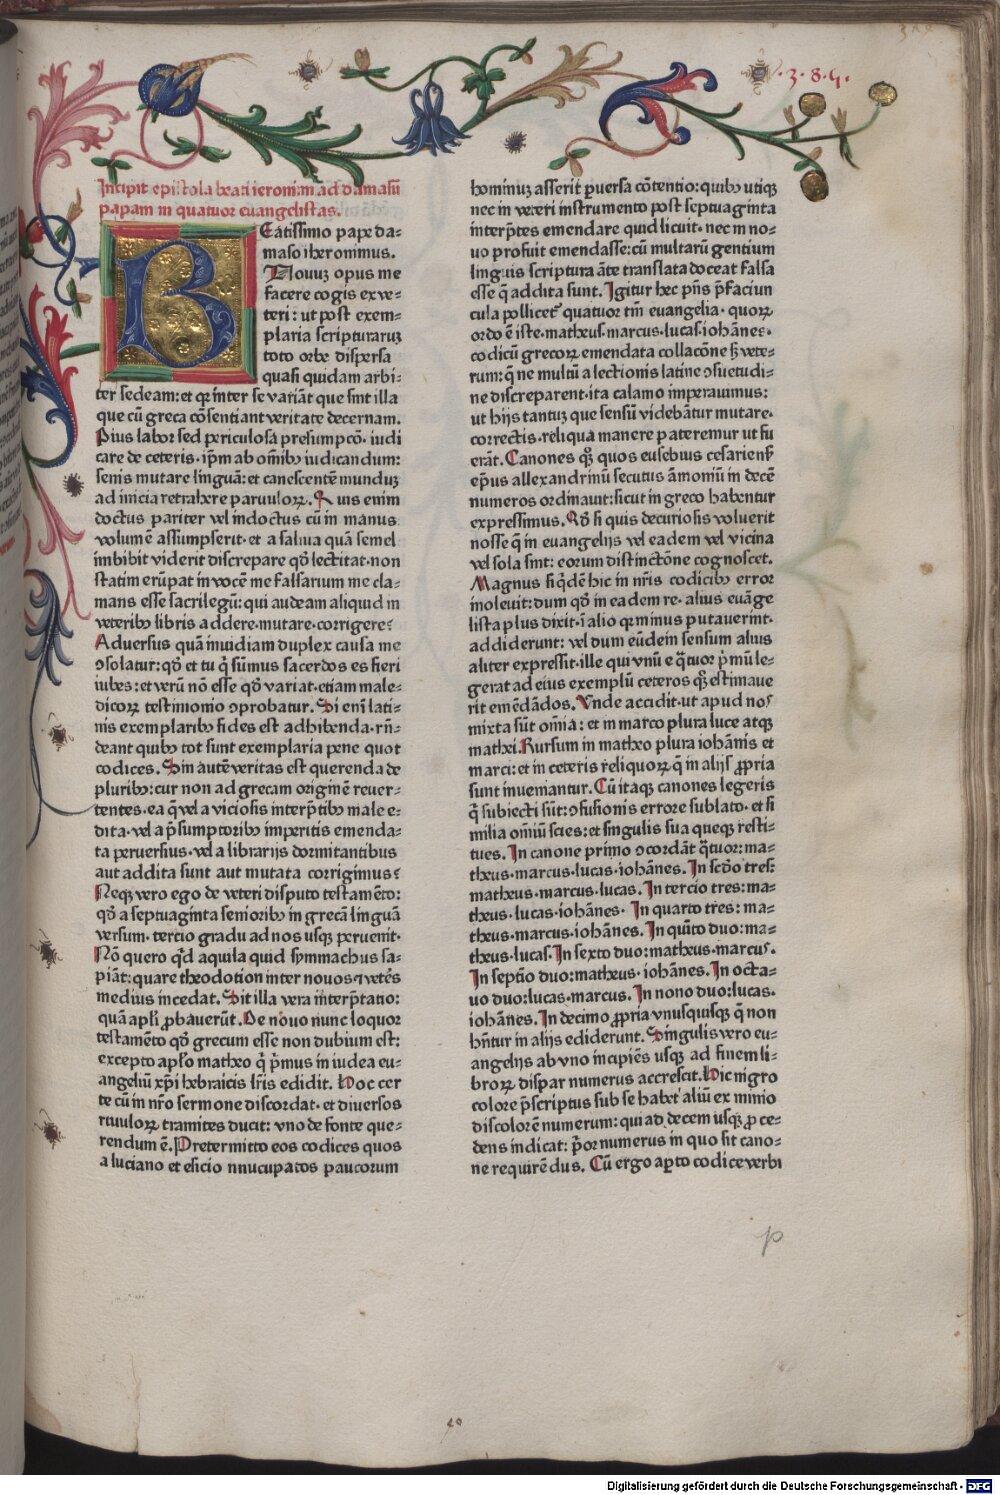 .3.8.5.
Incipit epistola beati ieronimi ad damasū
papam in quatuor euangelistas.
BEatissimo pape da⸗
maso iheronimus.
Nouuꝫ opus me
facere cogis ex ve⸗
teri: ut post exem⸗
plaria scripturaruꝫ
toto orbe dispersa
quasi quidam arbi⸗
ter sedeam: et qꝛ inter se variāt que sint illa
que cū greca cōsentiant veritate decernam.
Pius labor sed periculosa presumpcō· iudi
care de ceteris· ip̄m ab om̄ibꝫ iudicandum:
senis mutare linguā: et canescentē munduꝫ
ad inicia retrahere paruuloꝝ. Quis enim
doctus pariter vel indoctus cū in manus
volumē assumpserit· et a saliua quā semel
imbibit viderit discrepare qd̄ lectitat· non
statim erūpat in vocē me falsarium me cla⸗
mans esse sacrilegū: qui audeam aliquid in
veteribꝫ libris addere· mutare· corrigere?
Aduersus quā inuidiam duplex causa me
ꝯsolatur: qd̄ et tu q̄ sūmus sacerdos es fieri
iubes: et verū nō esse qd̄ variat· etiam male⸗
dicoꝝ testimonio ꝯprobatur. Si enī lati⸗
nis exemplaribꝫ fides est adhibenda· rn̄⸗
deant quibꝫ tot sunt exemplaria pene quot
codices. Sin autē veritas est querenda de
pluribꝫ: cur non ad grecam originē reuer⸗
tentes· ea q̄ vel a viciosis interp̄tibꝫ male e⸗
dita· vel a p̄sumptoribꝫ imperitis emenda⸗
ta peruersius· vel a librarijs dormitantibus
aut addita sunt aut mutata corrigimus?
Neqꝫ vero ego de veteri disputo testamēto:
qd̄ a septuaginta senioribꝫ in grecā linguā
versum· tercio gradu ad nos usqꝫ peruenit·
Nō quero qd̄ aquila quid symmachus sa⸗
piāt: quare theodotion inter nouos ⁊ vetēs
medius incedat. Sit illa vera interp̄tatio:
quā apl̄i ꝓbauerūt. De nouo nunc loquor
testamēto qd̄ grecum esse non dubium est:
excepto apl̄o matheo q̄ p̄mus in iudea eu⸗
angeliū xp̄i hebraicis lr̄is edidit. Hoc cer
te cū in nr̄o sermone discordat· et diuersos
riuuloꝝ tramites ducit: uno de fonte que⸗
rendum ē. Pretermitto eos codices quos
a luciano et esicio nnucupatos paucorum
hominuꝫ asserit ꝑuersa cōtentio: quibꝫ utiqꝫ
nec in veteri instrumento post septuaginta
interp̄tes emendare quid licuit· nec in no⸗
uo profuit emendasse: cū multarū gentium
linguis scriptura āte translata doceat falsa
esse q̄ addita sunt. Igitur hec p̄ns p̄faciun
cula pollicet᷑ quatuor tm̄ euangelia· quoꝝ
ordo ē iste· matheus· marcus· lucas· iohānes·
codicū grecoꝝ emendata collacōne sꝫ vete⸗
rum: q̄ ne multū a lectionis latine ꝯsuetudi⸗
ne discreparent· ita calamo imperauimus:
ut hijs tantuꝫ que sensū videbātur mutare·
correctis· reliqua manere pateremur ut fu
erāt. Canones qꝫ quos eusebius cesariens̄
ep̄us allexandrinū secutus āmoniū in decē
numeros ordinauit: sicut in greco habentur
expressimus. Qd̄ si quis de curiosis voluerit
nosse q̄ in euangelijs vel eadem vel vicina
vel sola sint: eorum distinctōne cognoscet.
Magnus siq̄dē hic in nr̄is codicibꝫ error
inoleuit: dum qd̄ in eadem re· alius euāge
lista plus dixit· ī alio qꝛ minus putauerint·
addiderunt: vel dum eūdem sensum alius
aliter expressit· ille qui vnū e q̄tuor p̄mū le⸗
gerat ad eius exemplū ceteros qꝫ estimaue
rit emēdādos. Unde accidit· ut apud nos
mixta sūt om̄ia: et in marco plura luce atqꝫ
mathei. Rursum in matheo plura iohānis et
marci: et in ceteris reliquoꝝ q̄ in alijs ꝓpria
sunt inueniantur. Cū itaqꝫ canones legeris
q̄ subiecti sūt: ꝯfusionis errore sublato· et si
milia om̄iū scies: et singulis sua queqꝫ resti⸗
tues. In canone primo ꝯcordāt q̄tuor: ma⸗
theus· marcus· lucas· iohānes. In scd̄o tres:
matheus· marcus· lucas. In tercio tres: ma⸗
theus· lucas· iohānes· In quarto tres: ma⸗
theus· marcus· iohānes. In quīto duo: ma⸗
theus· lucas. In sexto duo: matheus· marcus·
In septīo duo: matheus· iohānes. In octa⸗
uo duo: lucas· marcus. In nono duo: lucas·
iohānes. In decimo ꝓpria vnusquisqꝫ q̄ non
hn̄tur in alijs ediderunt. Singulis vero eu⸗
angelijs ab vno incipiēs usqꝫ ad finem li⸗
broꝝ dispar numerus accrescit. Hic nigro
colore p̄scriptus sub se habet aliū ex minio
discolorē numerum: qui ad decem usqꝫ ꝓce⸗
dens indicat: p̄or numerus in quo sit cano⸗
ne requirēdus. Cū ergo aꝑto codice verbi
p
Digitalisierung gefördert durch die Deutsche Forschungsgemeinschaft - DFG